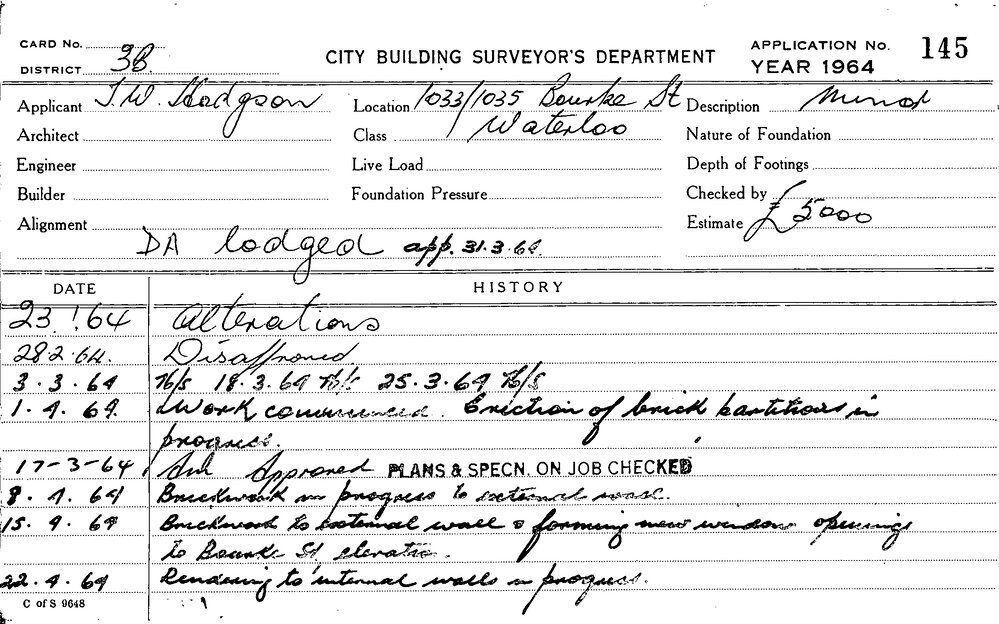 CARD No.
DISTRICT 3B
CITY BUILDING SURVEYOR'S DEPARTMENT
APPLICATION No. 145
YEAR 1964
Applicant J. W. Hodgson Location 1033/1035 Bourke St Description Minor
Architect Class Waterloo Nature of Foundation
Engineer Live Load Depth of Footings
Builder Foundation Pressure Checked by
Alignment Estimate £5000
DA lodged app. 31.3.64.
DATE HISTORY
23.1.64 Alterations
28.2.64. Disapproved
3.3.64 N/S 18.3.64 N/S 25.3.64 N/S
1.4.64. Work commenced. Erection of brick partitions in
progress.
17-3-64 Approved PLANS & SPECN. ON JOB CHECKED
8.4.64 Brickwork in progress to external walls.
15.4.64 Brickwork to external wall & forming new window openings
to Bourke St elevation.
22.4.64 Rendering to internal walls in progress.
C of S 9648